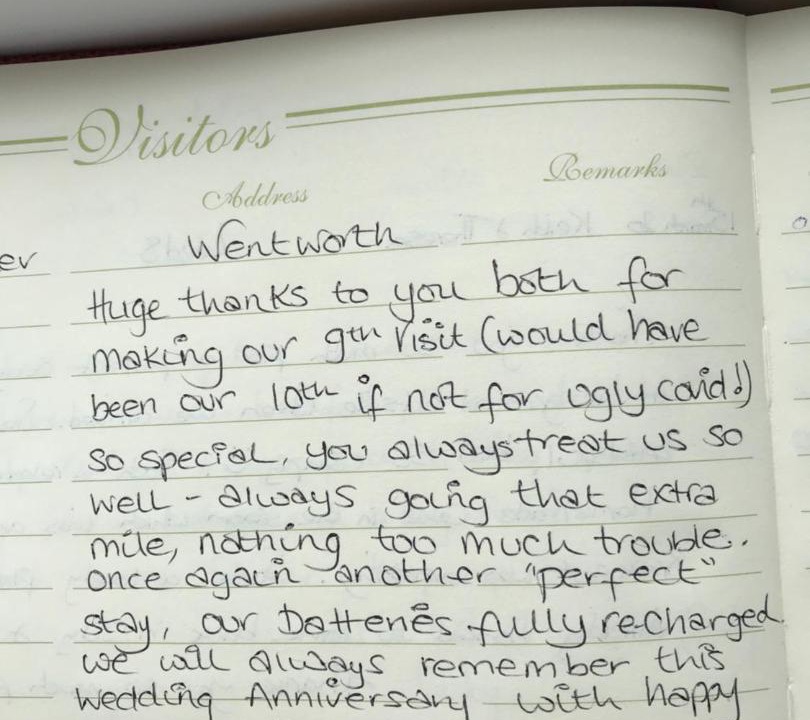 Visitors
Address
Remarks
er
Wentworth
Huge thanks to you both for
making our 9th visit (would have
been our 10th if not for ugly covid!)
so special, you always treat us so
well - always going that extra
mile, nothing too much trouble.
once again another "perfect"
stay, our batteries fully recharged
we will always remember this
wedding Anniversary with happy